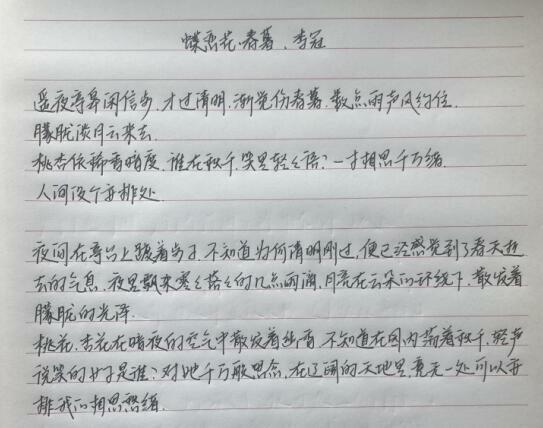 蝶恋花·春暮.李冠
遥夜亭皋闲信步.才过清明.渐觉伤春暮.数点雨声风约住.
朦胧淡月云来去.
桃杏依稀香暗度.谁在秋千.笑里轻轻语?一寸相思千万绪.
人间没个安排处.
夜间在亭台上踱着步子.不知道为何清明刚过,便已经感觉到了春天逝
去的气息.夜里飘来零零落落的几点雨滴,月亮在云朵的环绕下,散发着
朦胧的光泽.
桃花、杏花在暗夜的空气中散发着幽香.不知道在园内荡着秋千,轻声
说笑的女子是谁?对她千万般思念,在辽阔的天地里,竟无一处可以安
排我的相思愁绪.